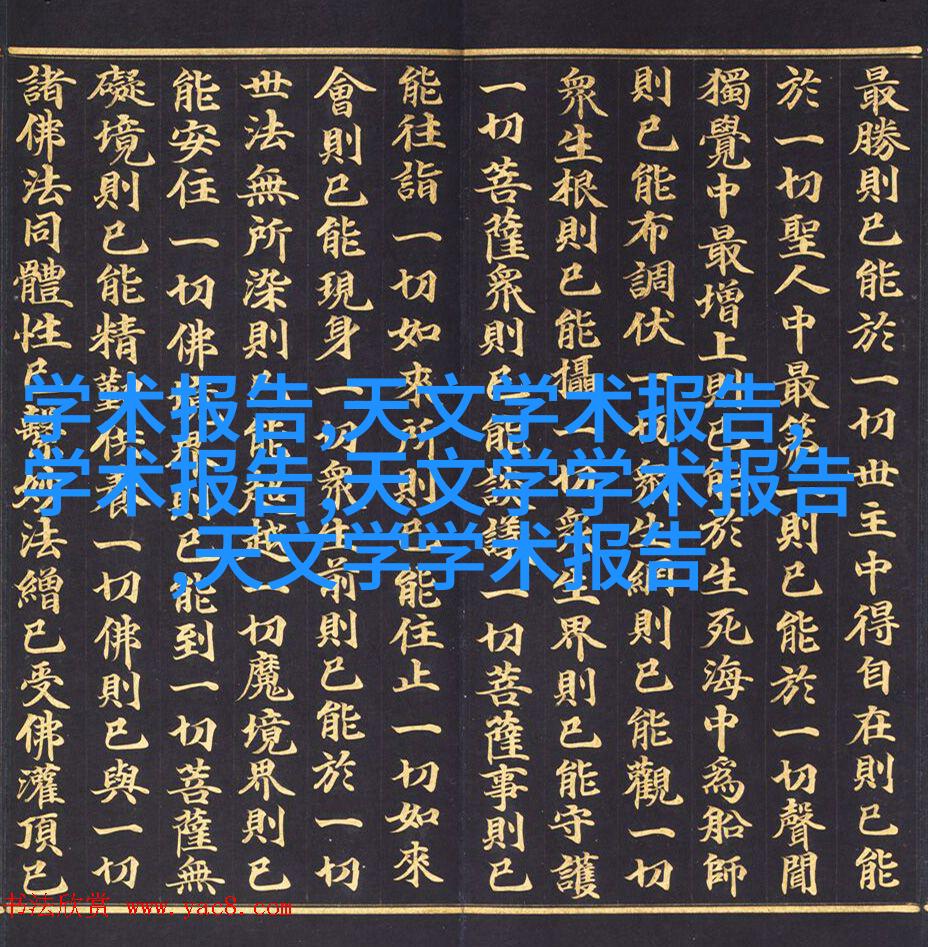 最勝則已能於一切世主中得自在則已能
於一切聖人中最苐一則已能於一切聲聞
獨覺中最增上則已能於生死海中爲船師
則已能布調伏一切衆生網則已能觀一切
衆生根則已能攝一切衆生界則已能守護
一切菩薩衆則已能談議一切菩薩事則已
能往詣一切如來所則已能住止一切如來
會則已能現身一切衆生前則已能於一切
世法無所染則已能超越一切魔境界則已
能安住一切佛境界則已能到一切菩薩無
礙境則已能精勤供養一切佛則已與一切
諸佛法同體性已繫妙法繒已受佛灌頂已
学术报告,天文学术报告,
学术报告,天文学学术报告
,天文学学术报告
书法欣赏 www.yac8.com